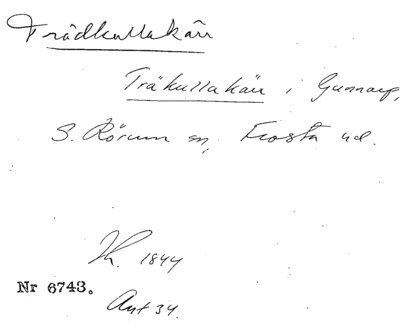 Trädkullakärr
Träkullakärr i Gunnarp,
S. Rörum sn, Frosta hd.
Th. 1844
Nr 6743.
Ant 34.